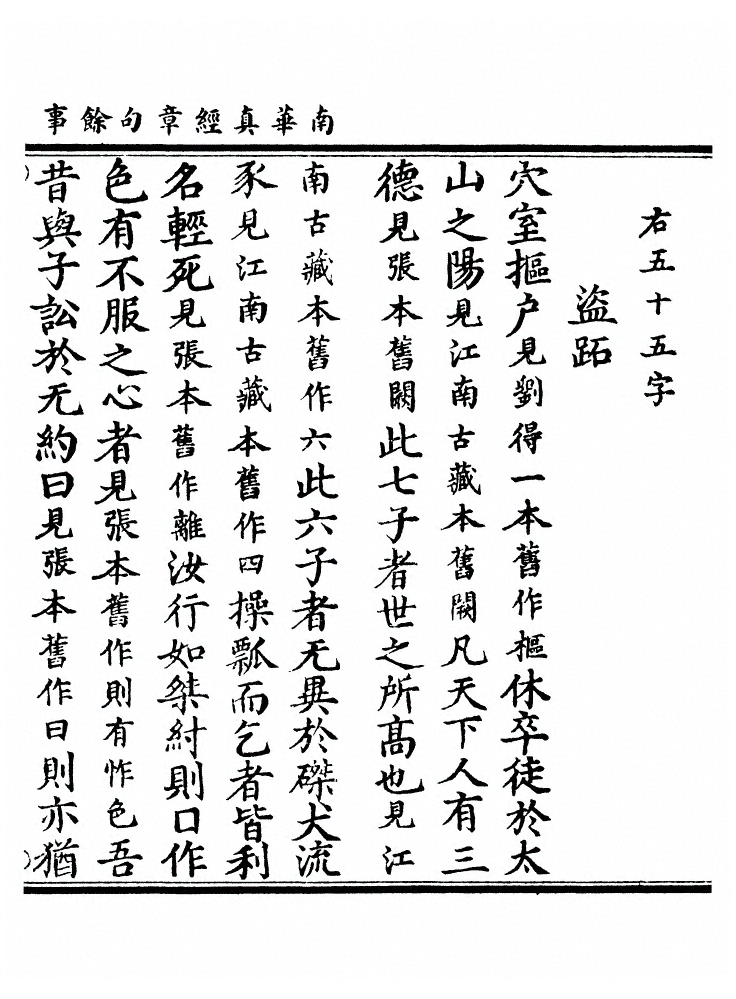 南華真經章句餘事
右五十五字
盜跖
穴室摳户見劉得一本舊作樞休卒徒於太
山之陽見江南古藏本舊闕凡天下人有三
德見張本舊闕此七子者世之所髙也見江
南古藏本舊作六此六子者无異於磔犬流
豕見江南古藏本舊作四操瓢而乞者皆利
名輕死見張本舊作離汝行如桀紂則口作
色有不服之心者見張本舊作則有怍色吾
昔與子訟於无約曰見張本舊作日則亦猶